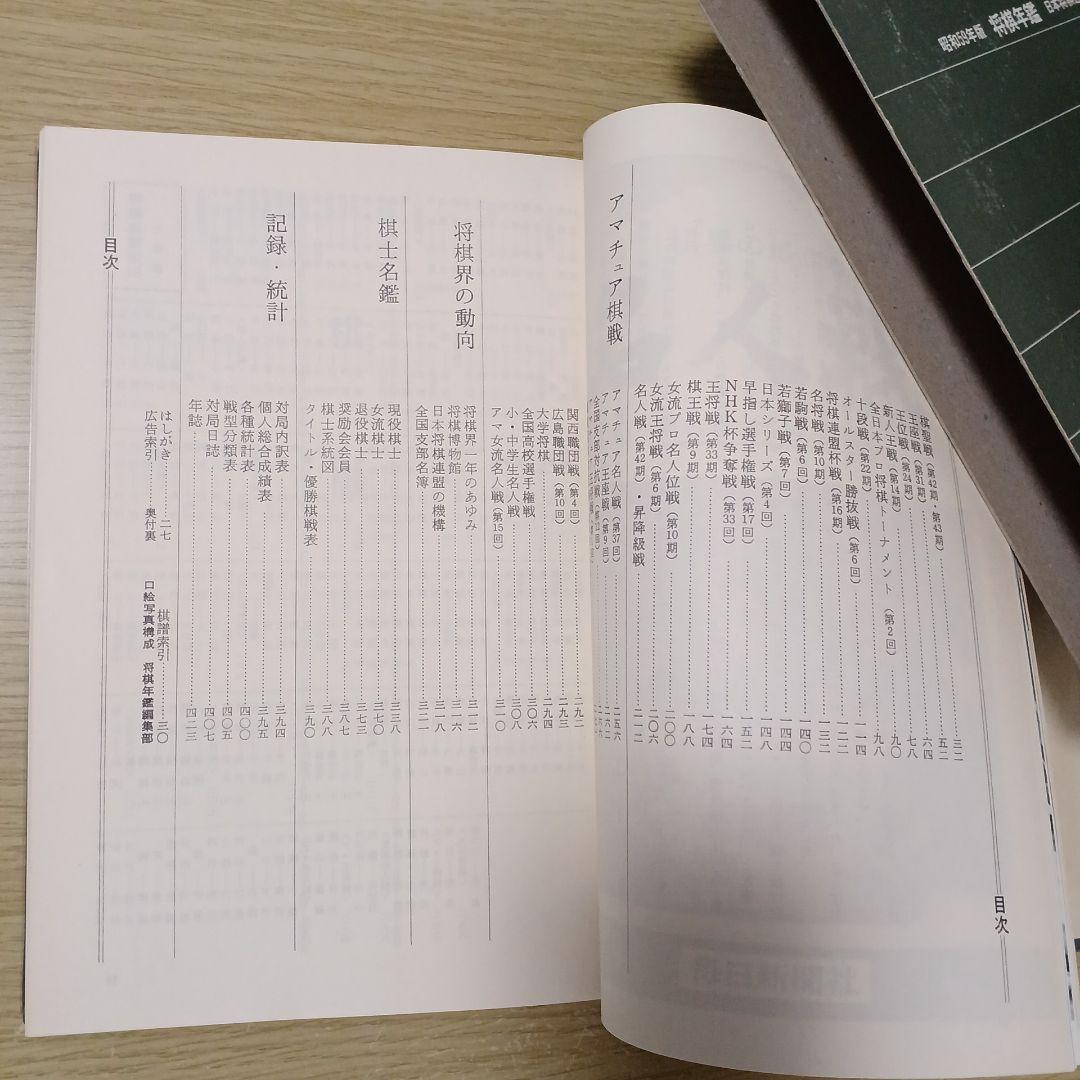 昭和59年版 将棋年鑑
目次
棋聖戦(第42期・第43期)……三二
王座戦(第31期)……五二
王位戦(第24期)……六四
新人王戦(第14期)……七八
全日本プロ将棋トーナメント(第2回)……九〇
十段戦(第22期)……九八
オールスター勝抜戦(第6回)……一一四
将棋連盟杯戦(第16期)……一二二
名将戦(第10期)……一三二
若駒戦(第6回)……一四〇
若獅子戦(第7回)……一四四
日本シリーズ(第4回)……一四八
早指し選手権戦(第17回)……一五二
NHK杯争奪戦(第33回)……一六四
王将戦(第33期)……一七四
棋王戦(第9期)……一八八
女流プロ名人位戦(第10期)……二〇〇
女流王将戦(第6期)……二〇六
名人戦(第42期)・昇降級戦……二一二
アマチュア棋戦
アマチュア名人戦(第37回)……二五六
アマチュア王座戦(第9回)……
全国支部対抗戦
関西職団戦(第4回)……二九二
広島職団戦(第10回)……二九三
大学将棋……二九四
全国高校選手権戦……三〇六
小・中学生名人戦……三〇八
アマ女流名人戦(第15回)……三一〇
将棋界の動向
将棋界一年のあゆみ……三一二
将棋博物館……三一六
日本将棋連盟の機構……三一八
全国支部名簿……三二一
棋士名鑑
現役棋士……三三八
女流棋士……三七〇
退役棋士……三七三
奨励会会員……三八七
棋士系統図……三八八
タイトル・優勝棋戦表……三九〇
記録・統計
対局内訳表……三九四
個人総合成績表……三九五
各種統計表……四〇〇
戦型分類表……四〇五
対局日誌……四〇七
年誌……四二三
はしがき……二七
棋譜索引……三〇
広告索引……奥付裏
口絵写真構成 将棋年鑑編集部
目次